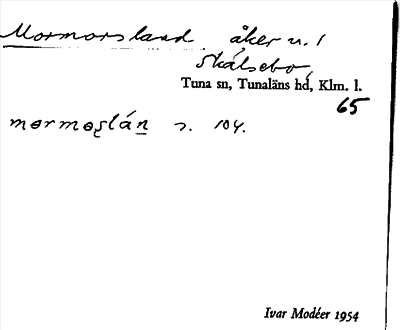 Mormorsland åker n. 1
Skälsebo,
Tuna sn, Tunaläns hd, Klm. l.
65
s. 104.
Ivar Modéer 1954